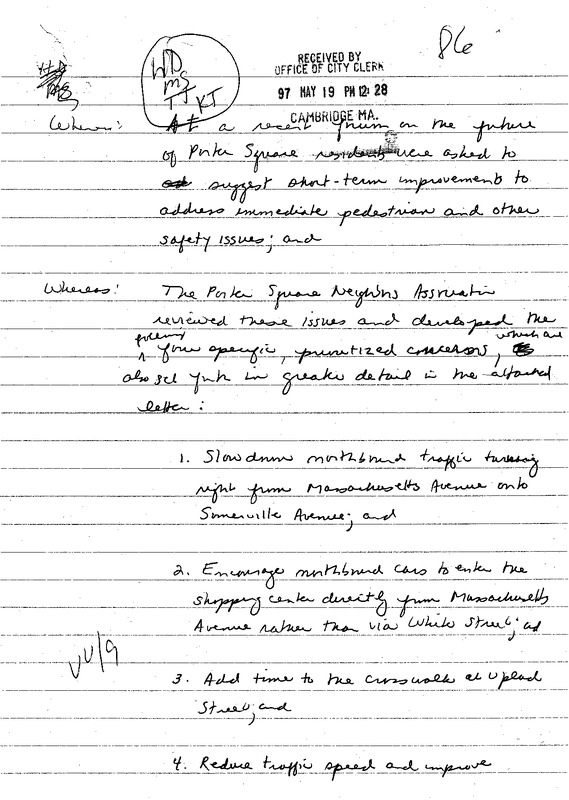 86
WD
MS
TJ KT
RECEIVED BY
OFFICE OF CITY CLERK
97 MAY 19 PM 12:28
CAMBRIDGE MA.
Whereas: At a recent forum on the future
of Porter Square residents were asked to
suggest short-term improvements to
address immediate pedestrian and other
safety issues; and
Whereas: The Porter Square Neighbors Association
reviewed these issues and developed the
four specific, prioritized concerns, which are
also set forth in greater detail in the attached
letter:
1. Slow down northbound traffic turning
right from Massachusetts Avenue onto
Somerville Avenue; and
2. Encourage northbound cars to enter the
shopping center directly from Massachusetts
Avenue rather than via White Street; and
3. Add time to the crosswalk at Upland
Street; and
4. Reduce traffic speed and improve